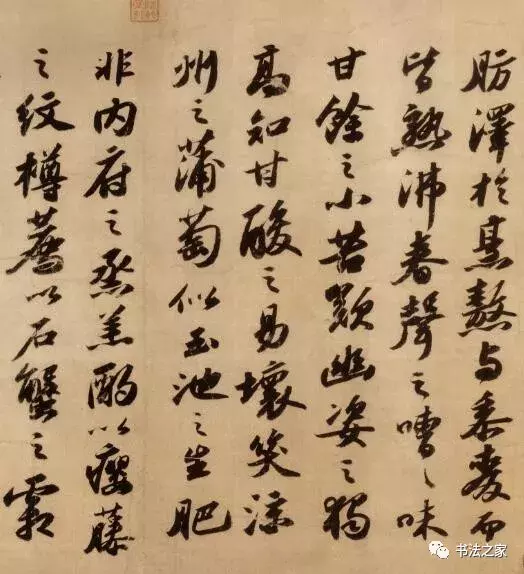 肪澤於烹熬與黍麥而
皆熟沸舂聲之嘈々味
甘餘之小苦歎幽姿之獨
高知甘酸之易壞笑涼
州之蒲萄似玉池之生肥
非内府之烝羔酌以癭藤
之紋樽薦以石蟹之霜
书法之家